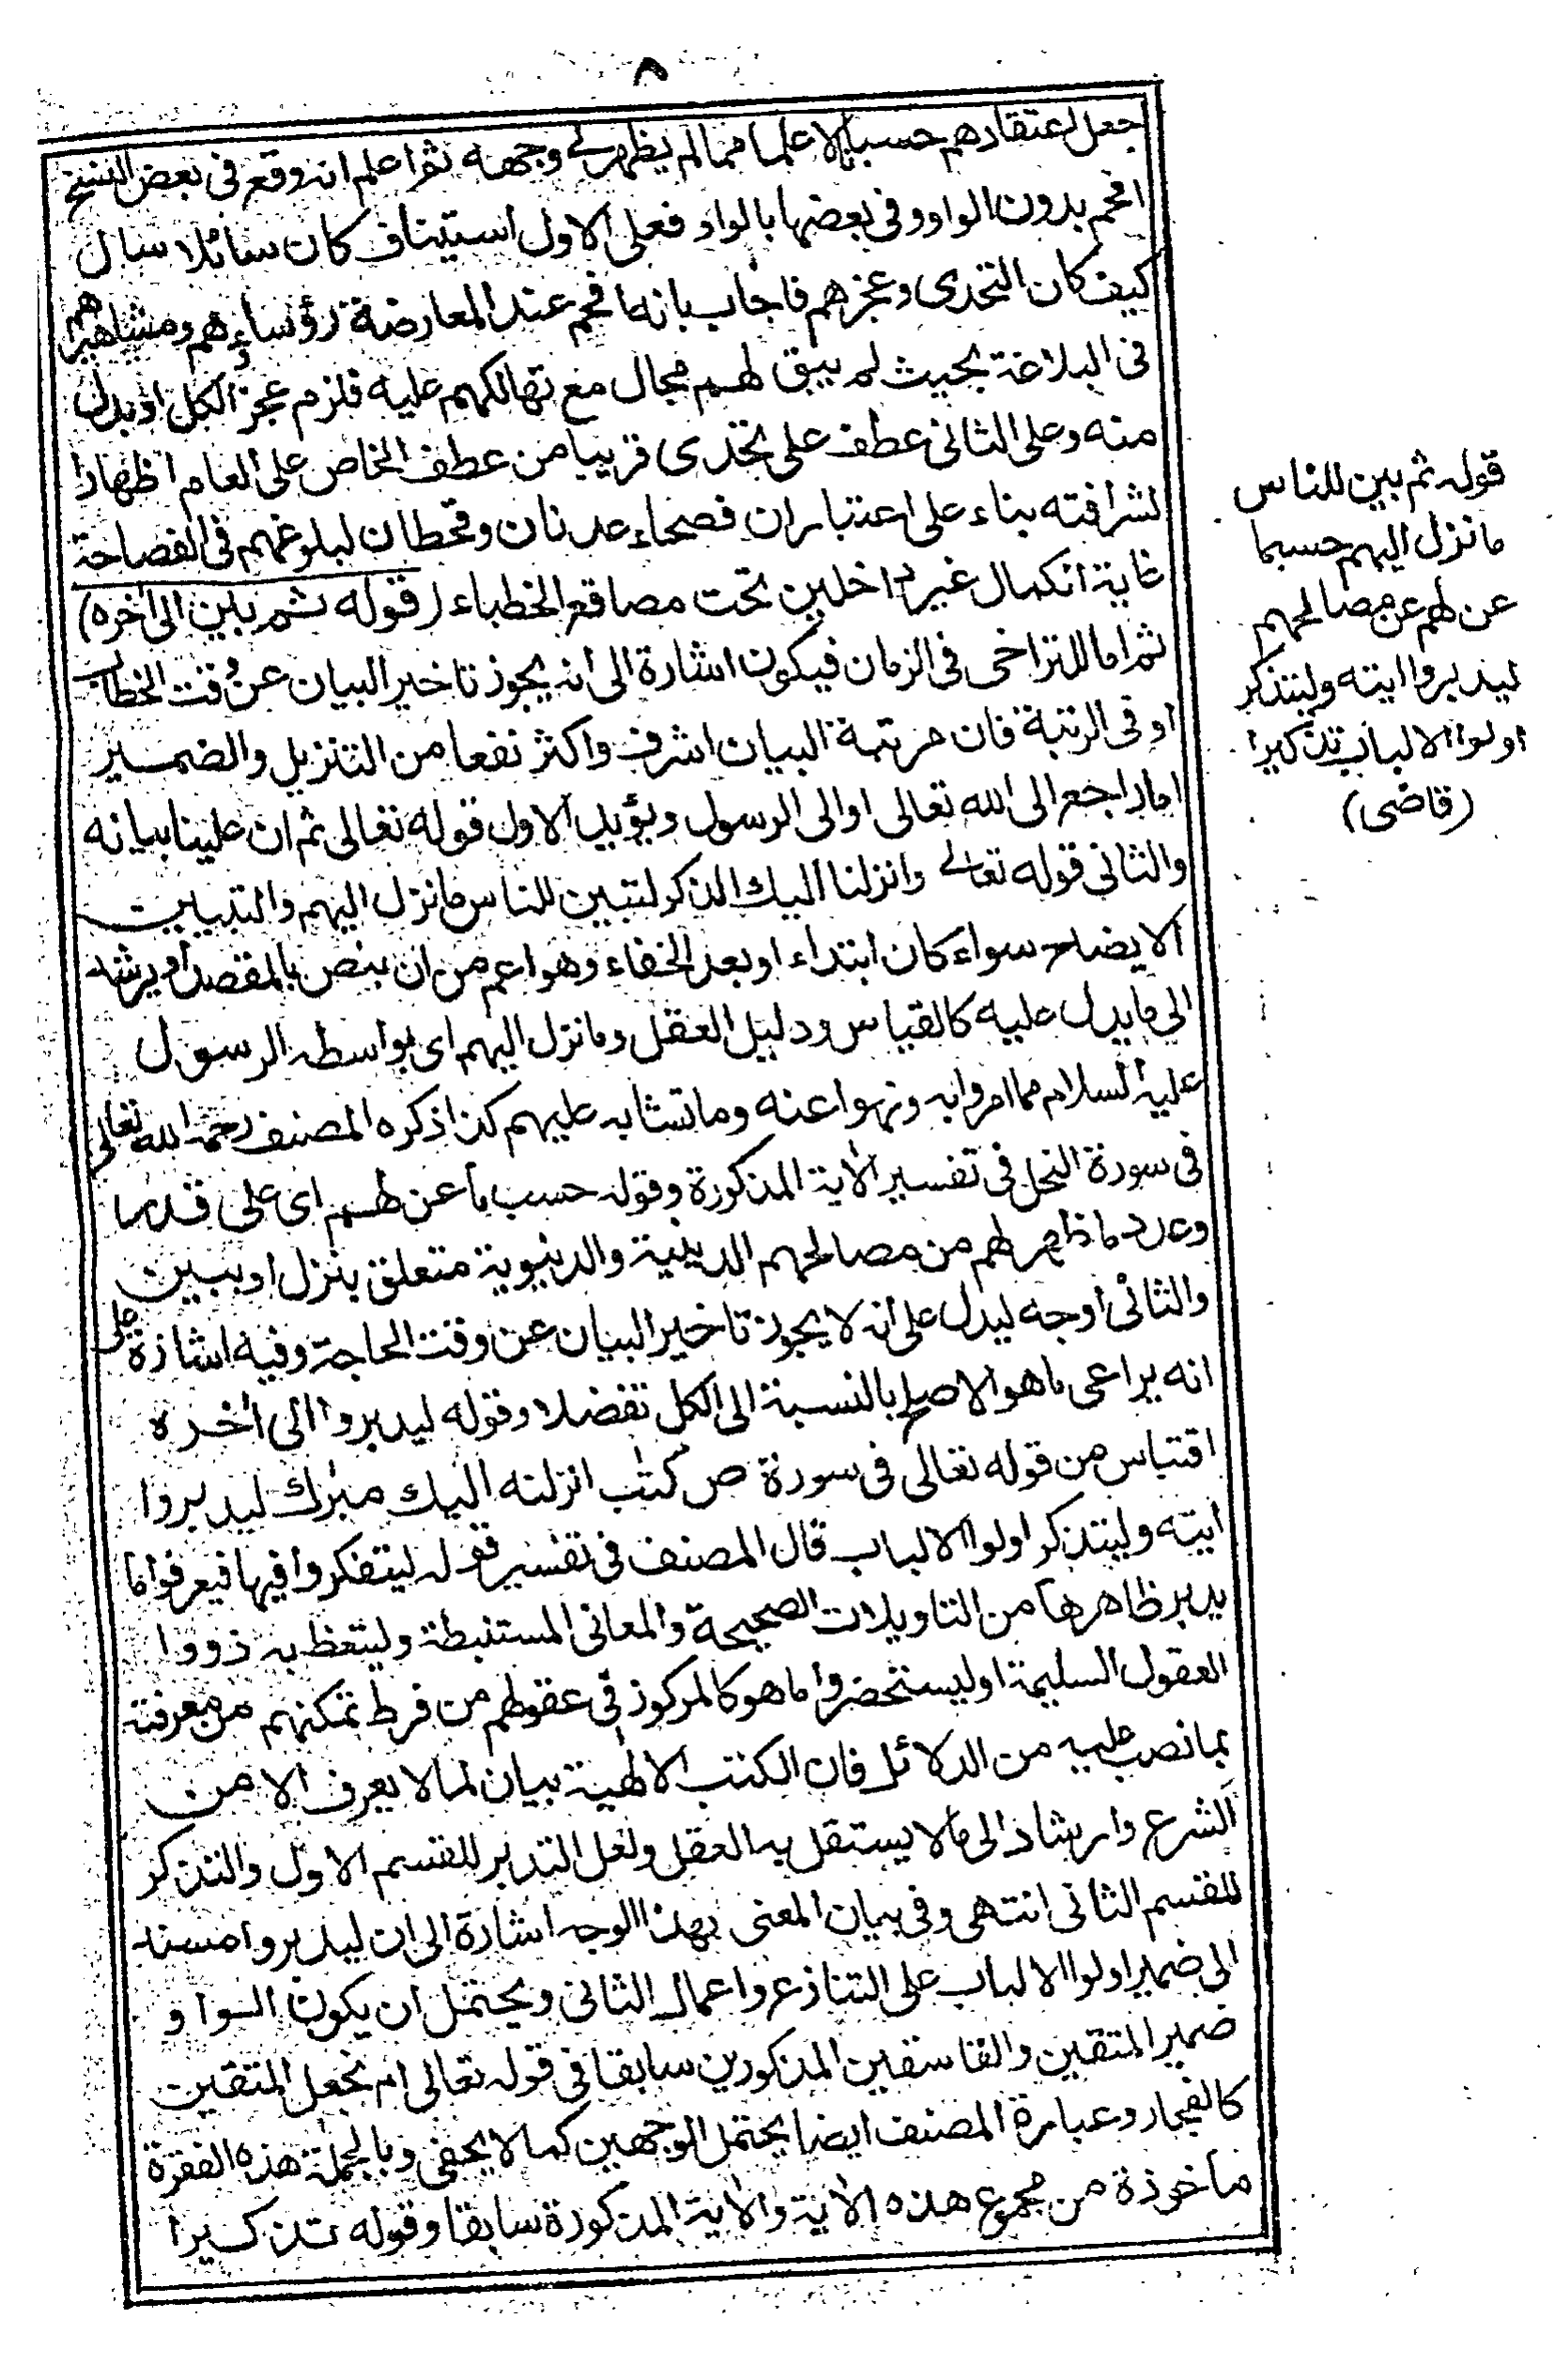 ٨
جعل اعتقادهم حسبانا لا علما مما لم يظهر لي وجهه ثم اعلم انه وقع في بعض النسخ
افحم بدون الواو وفي بعضها بالواو فعلى الاول استيناف كان سائلا سال
كيف كان التحدى وعجزهم فاجاب بانه افحم عند المعارضة رؤساءهم ومشاهيرهم
في البلاغة بحيث لم يبق لهم مجال مع تهالكهم عليه فلزم عجز الكل او بدل
منه وعلى الثاني عطف على تحدى قريبا من عطف الخاص على العام اظهارا
لشرافته بناء على اعتبار ان فصحاء عدنان وقحطان لبلوغهم في الفصاحة
غاية الكمال غير داخلين تحت مصاقع الخطباء (قوله ثم بين الى آخره)
ثم اما للتراخى في الزمان فيكون اشارة الى انه يجوز تاخير البيان عن وقت الخطاب
او في الرتبة فان مرتبة البيان اشرف واكثر نفعا من التنزيل والضمير
اما راجع الى الله تعالى او الى الرسول ويؤيد الاول قوله تعالى ثم ان علينا بيانه
والثاني قوله تعالى وانزلنا اليك الذكر لتبين للناس ما نزل اليهم والتبيين
الايضاح سواء كان ابتداء او بعد الخفاء وهو اعم من ان ينص بالمقصد او يرشد
الى ما يدل عليه كالقياس ودليل العقل وما نزل اليهم اى بواسطة الرسول
عليه السلام مما امروا به ونهوا عنه وما تشابه عليهم كذا ذكره المصنف رحمه الله تعالى
في سورة النحل في تفسير الآية المذكورة وقوله حسب ما عن لهم اى على قدر ما
وعدد ما ظهر لهم من مصالحهم الدينية والدنيوية متعلق بنزل او ببين
والثاني اوجه ليدل على انه لا يجوز تاخير البيان عن وقت الحاجة وفيه اشارة على
انه يراعى ما هو الاصلح بالنسبة الى الكل تفضلا وقوله ليدبروا الى آخره
اقتباس من قوله تعالى في سورة ص كتٰب انزلنه اليك مبٰرك ليدبروا
ايته وليتذكر اولوا الالباب قال المصنف في تفسير قوله ليتفكروا فيها فيعرفوا ما
يدبر ظاهرها من التاويلات الصحيحة والمعاني المستنبطة وليتعظ به ذووا
العقول السليمة او ليستحضروا ما هو كالمركوز في عقولهم من فرط تمكنهم من معرفته
بما نصب عليه من الدلائل فان الكتب الالٰهية بيان لما لا يعرف الا من
الشرع وارشاد الى ما لا يستقل به العقل ولعل التدبر للقسم الاول والتذكر
للقسم الثاني انتهى وفي بيان المعنى بهذا الوجه اشارة الى ان ليدبروا مسند
الى ضمير اولوا الالباب على التنازع واعمال الثاني ويحتمل ان يكون الواو
ضمير المتقين والفاسقين المذكورين سابقا في قوله تعالى ام نجعل المتقين
كالفجار وعبارة المصنف ايضا يحتمل الوجهين كما لا يخفى وبالجملة هذه الفقرة
ماخوذة من مجموع هذه الآية والآية المذكورة سابقا وقوله تذكيرا
قوله ثم بين للناس
ما نزل اليهم حسبما
عن لهم عن مصالحهم
ليدبروا ايته وليتذكر
اولوا الالباب تذكيرا
(قاضى)